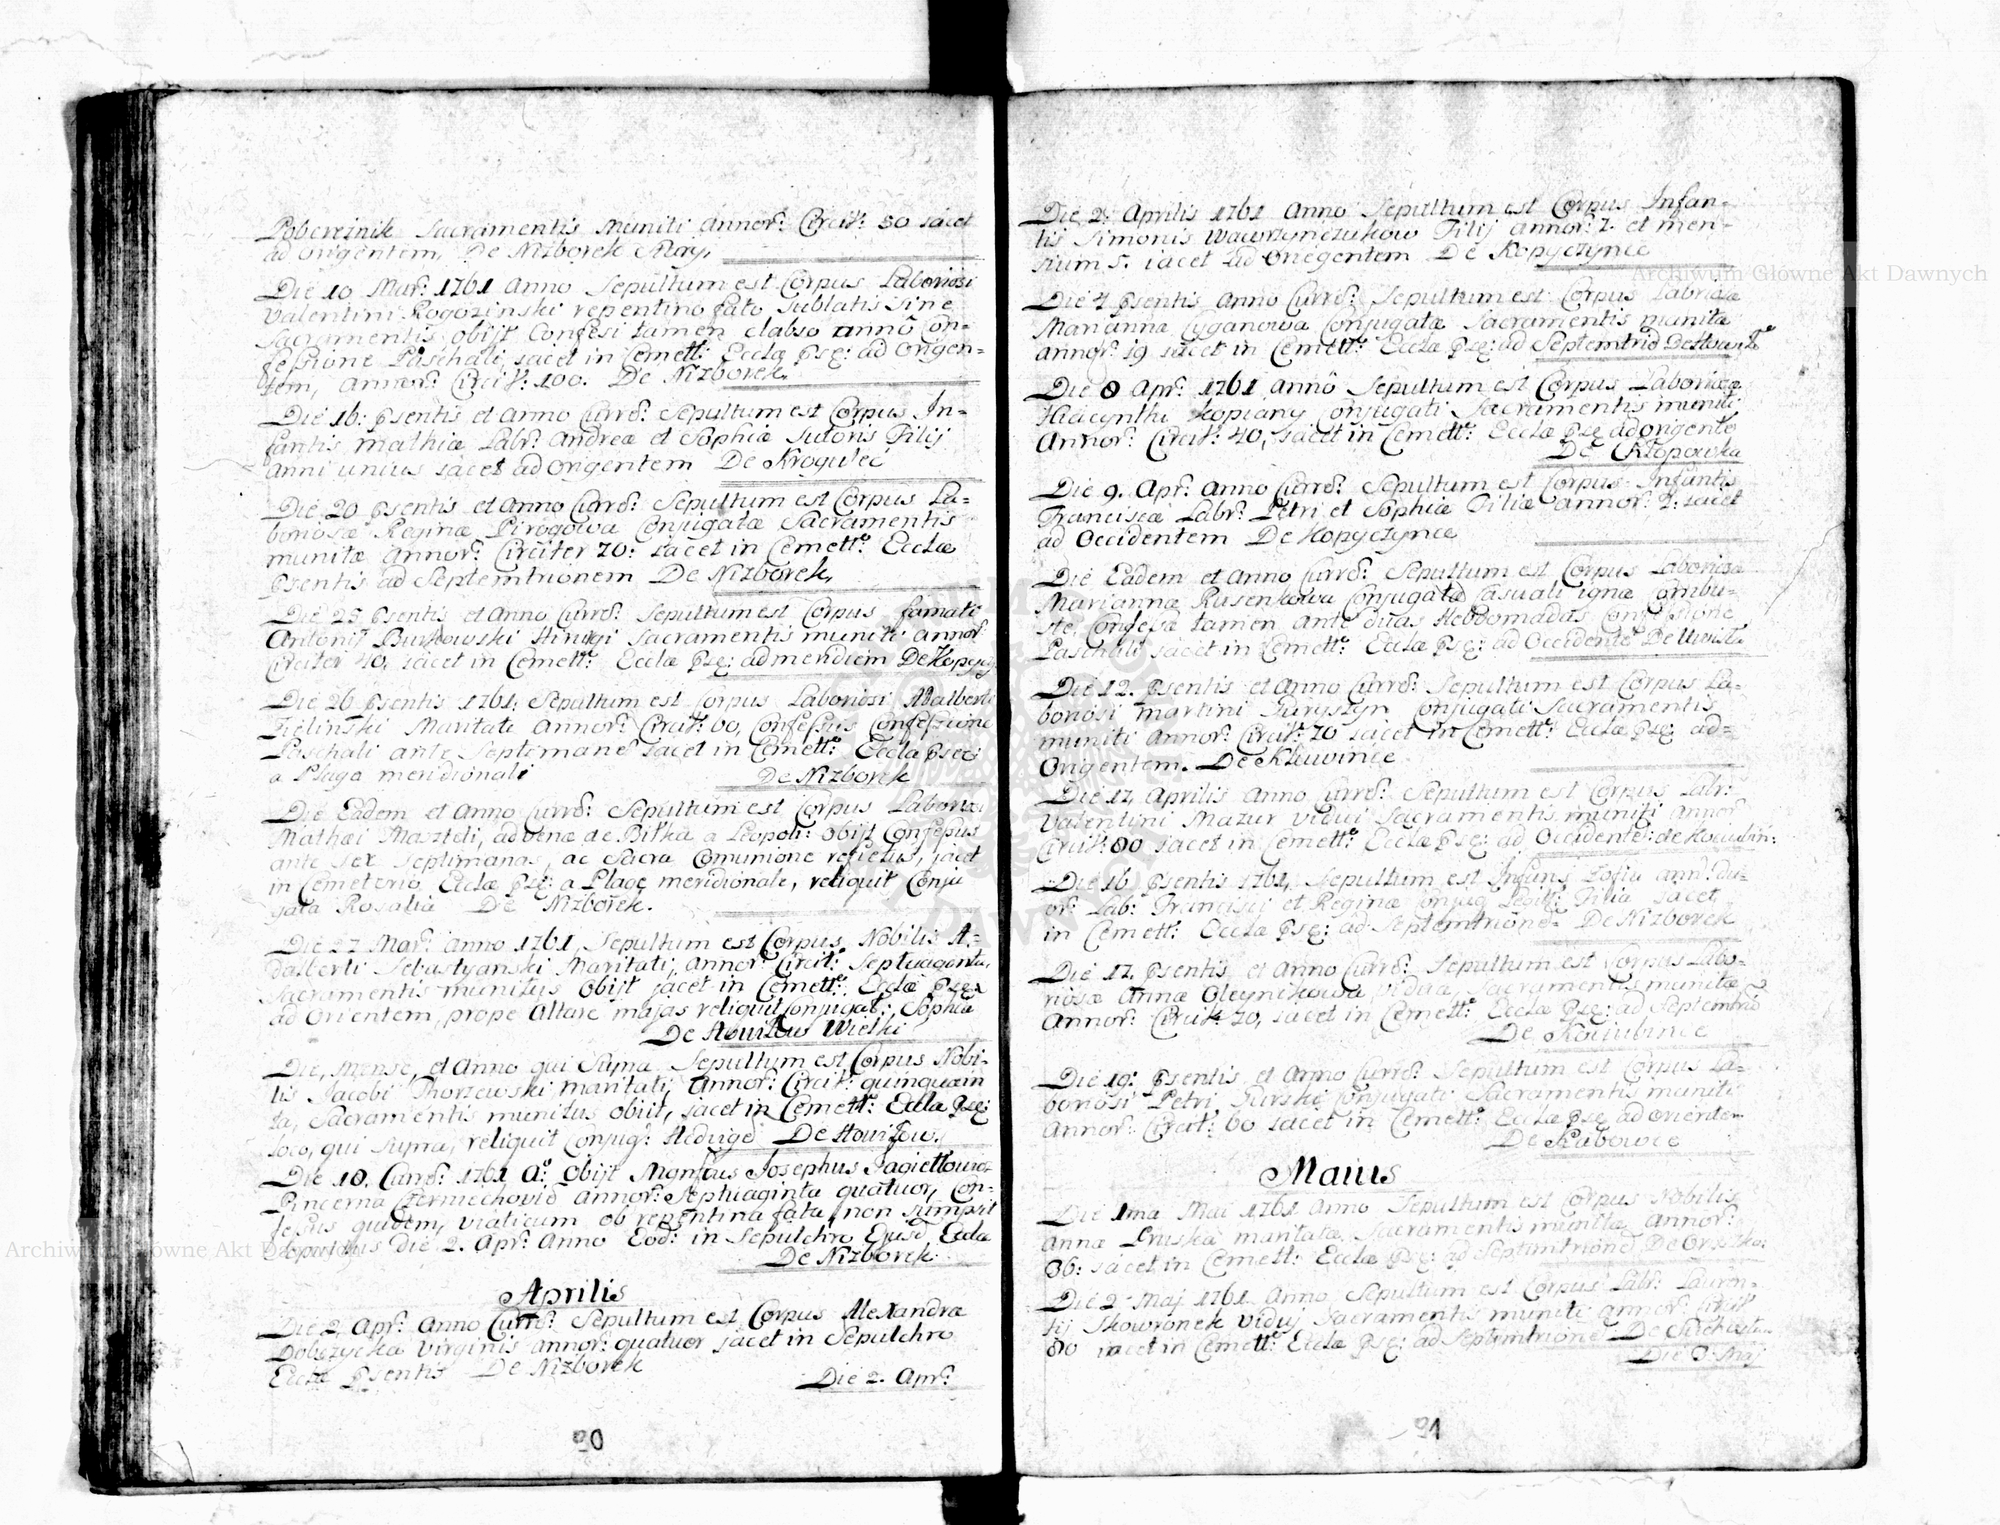 Pobereżnik Sacramentis Muniti Annor: Circit: 50 iacet
ad origentem, De Nizborek Stary.
Die 10 Mar: 1761 Anno Sepultum est Corpus Laboriosi
Valentini Rogozinski repentino fato sublatis sine
Sacramentis obijt Confesi tamen elabso anno Con-
fessione Paschali, iacet in Cemett: Eccłæ Psę: ad origen-
tem, annor: Circit: 100. De Nizborek.
Die 16: Psentis et Anno Curre: Sepultum est Corpus In-
fantis Mathiæ Labr: Andreæ et Sophiæ Sutoris Filij
Anni unius iacet ad origentem De Kroguleć
Die 20 Psentis et Anno Curre: Sepultum est Corpus La-
boriosæ Reginæ Pirogowa Conjugatæ Sacramentis
munitæ Annor: Circiter 70: iacet in Cemett: Eccłæ
Psentis ad Septemtrionem De Nizborek.
Die 25 Psentis et Anno Curre: Sepultum est Corpus famati
Antonij Burkowski Sacramentis muniti annor:
Circiter 40, iacet in Cemett: Eccłæ Psę: ad meridiem De Kopyczy:
Die 26 Psentis 1761: Sepultum est Corpus Laboriosi Adalberti
Zielinski Maritati Annor: Circit: 60, Confessus Confessione
Paschali ante Septimanę iacet in Cemett: Eccła Psęę:
a Plaga meridionali De Nizborek
Die Eadem et Anno Curre: Sepultum est Corpus Laborio:
Mathæi Maszteli, advenæ de Biłka a Leopoli: obijt Confessus
ante sex Septimanas, ac Sacra Comunione refectus, jacet
in Cemeterio Eccłæ Psę: a Plagę meridionale, reliquit Conju
gata Rosalia De Nizborek.
Die 27 Mar: anno 1761, Sepultum est Corpus Nobilis A-
dalberti Sebastyanski Maritati, Annor: Circit: Septuaginta,
Sacramentis munitus obijt jacet in Cemett: Eccłæ Psęę
ad Orientem, prope Altare majus reliquit Conjugat: Sophia
De Howiłow Wielki
Die, Mense, et Anno qui Supra Sepultum est Corpus Nobi-
lis Jacobi Thorzewski maritati, Annor: Circit: quinquagin
ta, Sacramentis munitus obiit, jacet in Cemett: Eccła Psę:
loco, qui supra, reliquit Conjug: Hedvige De Howiłow.
Die 18. Curre: 1761 A: Obijt Josephus Jagiełłowicz
Pincerna annor: Septuaginta quatuor, Con-
fessus quidem, viaticum ob repentina fata, non sumpsit
die 2. Apr: Anno Eod: in Sepulchro Ejusd: Eccłæ
De Nizborek.
Aprilis
Die 2 Apr: Anno Curre: Sepultum est Corpus Alexandræ
Dobrzycka Virginis annor: quatuor jacet in Sepulchro
Eccłæ Psentis De Nizborek
Die 2. Apr:
90
Die 2. Aprilis 1761 Anno Sepultum est Corpus Infan-
tis Simonis Wawrzynczukow Filij annor: 7. et men-
sium 5. iacet ad Oregentem De Kopyczynce
Die 4 Psentis Anno Curre: Sepultum est Corpus Labriosæ
Mariannæ Cyganowa Conjugatæ Sacramentis munitæ
annor: 19 iacet in Cemett: Eccłæ Psę: ad Septemtrio
Die 8 Apr: 1761 anno Sepultum est Corpus Laboriosæ
Hiacynthi Kopiany Conjugati Sacramentis muniti
Annor: Circit: 40, iacet in Cemett: Eccłæ Psę ad origente
De Chłopowka
Die 9. Apr: Anno Curre: Sepultum est Corpus Infantis
Franciscæ Labr: Petri et Sophiæ Filiæ annor: 2: iacet
ad Occidentem De Kopyczynce
Die Eadem et Anno Curre: Sepultum est Corpus Laboriosæ
Mariannæ Rusenkowa Conjugatæ Casuali ignæ Combu-
stę, Confessa tamen ante duas Hebdomadas Confessione
Paschali iacet in Cemett: Eccłæ Psę: ad Occidente
Die 12. Psentis et Anno Curre: Sepultum est Corpus La-
boriosi Martini Juryszyn Conjugati Sacramentis
muniti Annor: Circit: 70 iacet in Cemett: Eccłæ Psę: ad-
Origentem. De Kłuwince
Die 14 Aprilis Anno Curre: Sepultum est Corpus Labr:
Valentini Mazur Vidui Sacramentis muniti Annor:
Circit: 80 iacet in Cemett: Eccłæ Psę: ad Occidente: de Kociubin:
Die 16 Psentis 1761, Sepultum est Infans Zofia ann: du-
or: Lab: Francisci et Reginæ Conjug Legitt: Filia iacet
in Cemett: Eccłæ Psę: ad Septemtrione De Nizborek
Die 17. Psentis et Anno Curre: Sepultum est Corpus Labo-
riosæ Annæ Oleynikowa Viduæ, Sacramentis munitæ
Annor: Circit: 70, iacet in Cemett: Eccłæ Psę: ad Septemtrio
De Kociubince
Die 19: Psentis et Anno Curre: Sepultum est Corpus La-
boriosi Petri Turski Conjugati Sacramentis muniti
Annor: Circit: 60 iacet in Cemett: Eccłæ Psę ad oriente
De Rabowce
Maius
Die 1ma Mai 1761 Anno Sepultum est Corpus Nobilis
Annæ maritatæ, Sacramentis munitæ Annor:
36: iacet in Cemett: Eccłæ Psę: ad Septemtrione
Die 2 Maj 1761. Anno Sepultum est Corpus Labr: Lauren-
tij Skowronek vidui Sacramentis muniti annor: Circit
80 iacet in Cemett: Eccłæ Psę: ad Septemtrione
Die 3 Maj
91
Archiwum Główne Akt Dawnych
Archiwum Główne Akt Dawnych